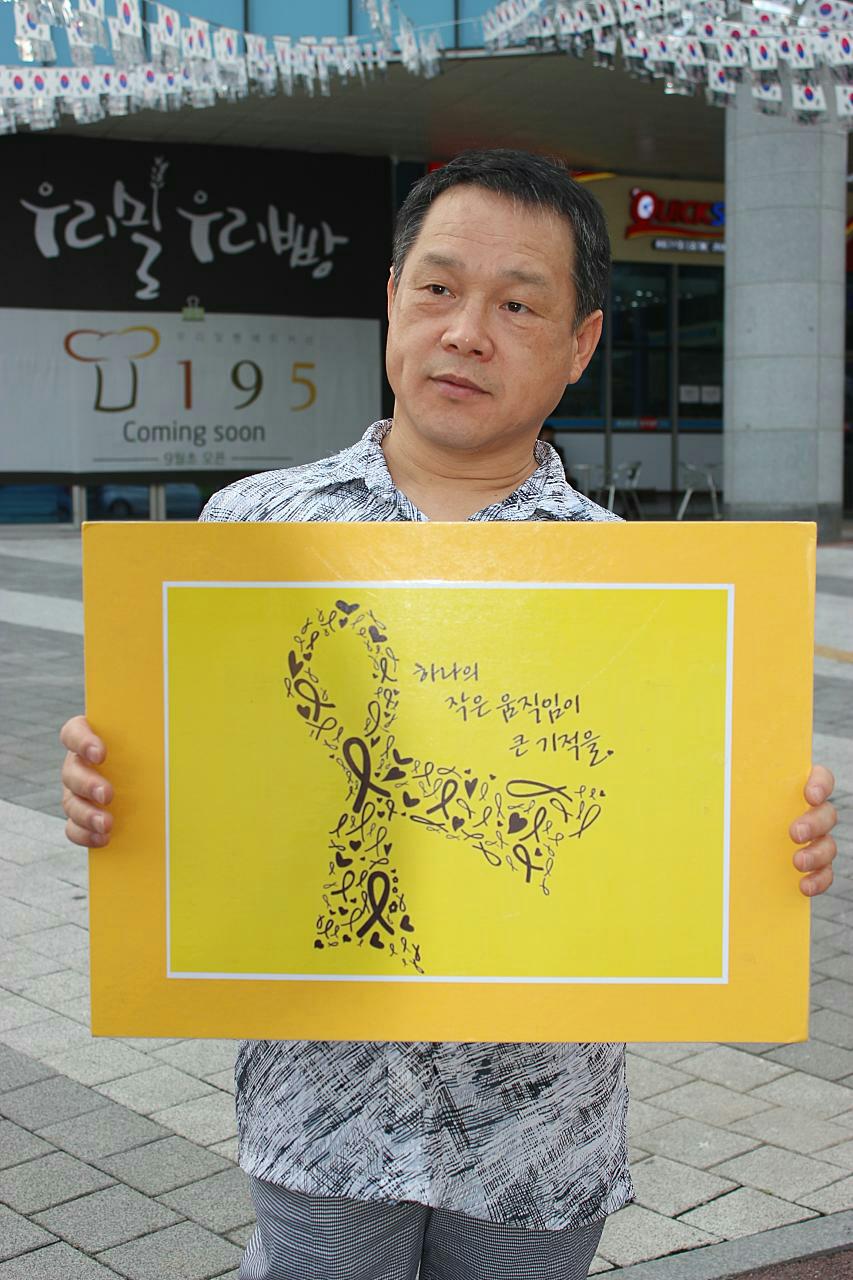 우리밀 우리빵
195
Coming soon
9월초 오픈
QUICKS
하나의
작은 움직임이
큰 기적을.